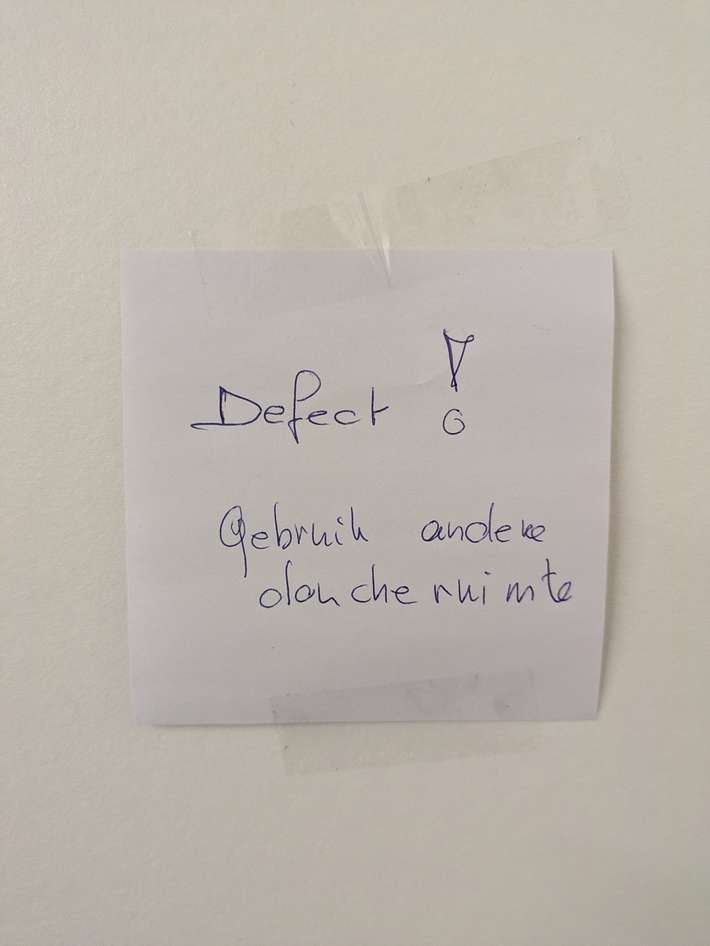 Defect !
Gebruik andere
doucheruimte